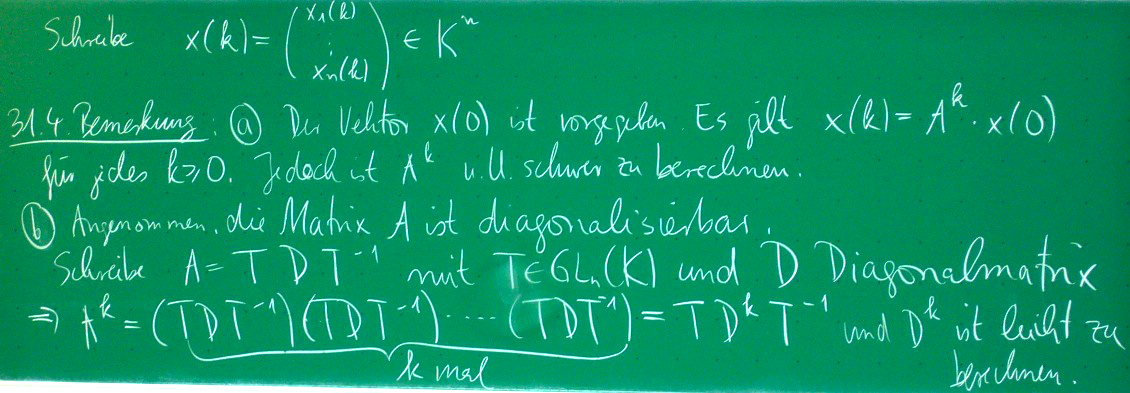 Schreibe x(k) = (x₁(k) ⋮ xₙ(k)) ∈ Kⁿ
31.4. Bemerkung: (a) Der Vektor x(0) ist vorgegeben. Es gilt x(k) = Aᵏ · x(0)
für jedes k ≥ 0. Jedoch ist Aᵏ u.U. schwer zu berechnen.
(b) Angenommen, die Matrix A ist diagonalisierbar.
Schreibe A = T D T⁻¹ mit T ∈ GLₙ(K) und D Diagonalmatrix
⇒ Aᵏ = (TDT⁻¹)(TDT⁻¹)·····(TDT⁻¹) = T Dᵏ T⁻¹ und Dᵏ ist leicht zu
k mal
berechnen.